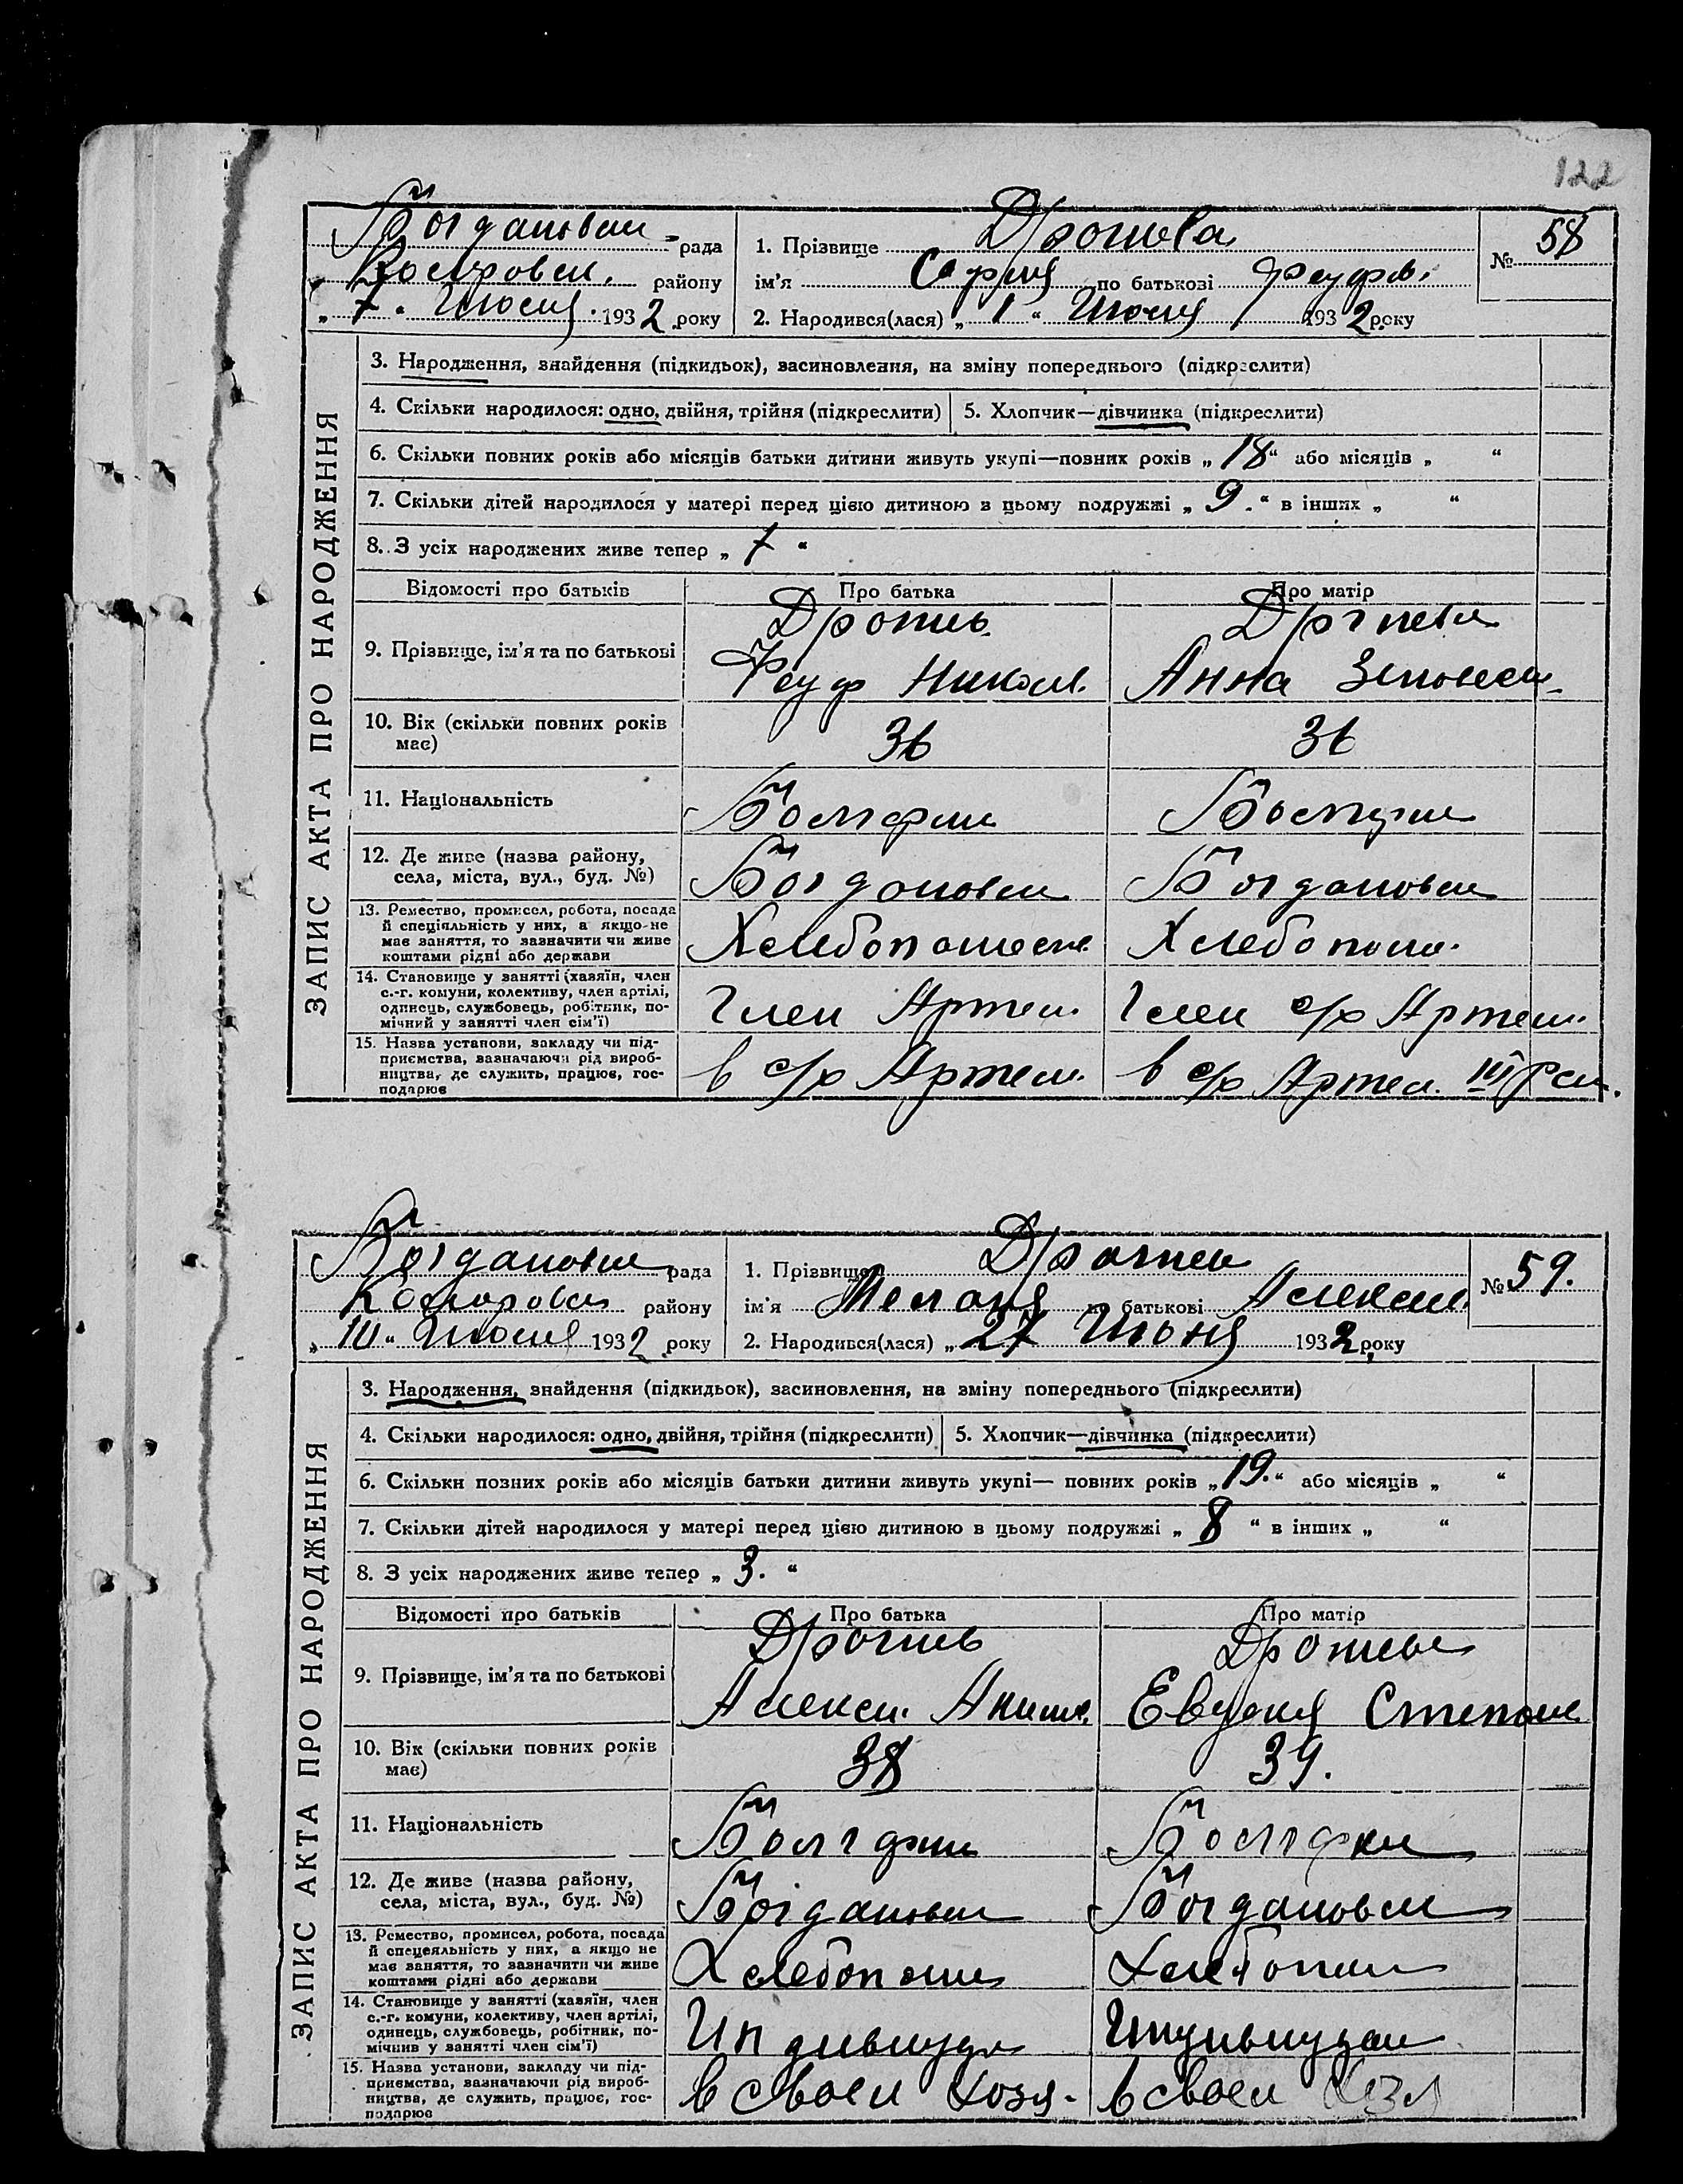 122
Богдановки рада
района
"7" Июля 1932 року
1. Прізвище Дротева
ім'я София по батькові
№ 58
2. Народився(лася) „1“ Июля 1932 року
ЗАПИС АКТА ПРО НАРОДЖЕННЯ
3. Народження, знайдення (підкидьок), засиновлення, на зміну попереднього (підкреслити)
4. Скільки народилося: одно, двійня, трійня (підкреслити) 5. Хлопчик—дівчинка (підкреслити)
6. Скільки повних років або місяців батьки дитини живуть укупі—повних років „18“ або місяців „ “
7. Скільки дітей народилося у матері перед цією дитиною в цьому подружжі „9.“ в інших „ “
8. З усіх народжених живе тепер „7“
Відомості про батьків Про батька Про матір
9. Прізвище, ім'я та по батькові
Дротев
Никол.
Дротева
Анна
10. Вік (скільки повних років
має)
36 36
11. Національність
12. Де живе (назва району,
села, міста, вул., буд. №)
Богдановки Богдановки
13. Ремество, промисел, робота, посада
й спеціяльність у них, а якщо не
має заняття, то зазначити чи живе
коштами рідні або держави
Хлебопаш.
14. Становище у занятті (хазяїн, член
с.-г. комуни, колективу, член артілі,
одинець, службовець, робітник, по-
мічний у занятті член сім'ї)
Член Артел. Член с/х Артели.
15. Назва установи, закладу чи під-
приємства, вазначаючи рід вироб-
ництва, де служить, працює, гос-
подарює
в с/х Артел. в с/х Артел.
Богдановки рада
району
„10“ Июля 1932 року
1. Прізвище Дротев
ім'я по батькові Алексеев.
№ 59.
2. Народився(лася) „27 Июня 1932 року
ЗАПИС АКТА ПРО НАРОДЖЕННЯ
3. Народження, знайдення (підкидьок), засиновлення, на зміну попереднього (підкреслити)
4. Скільки народилося: одно, двійня, трійня (підкреслити) 5. Хлопчик—дівчинка (підкреслити)
6. Скільки повних років або місяців батьки дитини живуть укупі— повних років „19.“ або місяців „ “
7. Скільки дітей народилося у матері перед цією дитиною в цьому подружжі „8“ в інших „ “
8. З усіх народжених живе тепер „3.“
Відомості про батьків Про батька Про матір
9. Прізвище, ім'я та по батькові
Дротев
Алексей
Дротева
Степан.
10. Вік (скільки повних років
має)
38 39.
11. Національність
12. Де живе (назва району,
села, міста, вул., буд. №)
Богдановки Богдановки
13. Ремество, промисел, робота, посада
й спецеяльність у них, а якщо не
має заняття, то зазначити чи живе
коштами рідні або держави
Хлебопаш
14. Становище у занятті (хазяїн, член
с.-г. комуни, колективу, член артілі,
одинець, службовець, робітник, по-
мічнив у занятті член сім'ї)
15. Назва установи, закладу чи під-
приємства, вазначаючи рід вироб-
ництва, де служить, працює, гос-
подарює
в своем хозя. в своем хозя